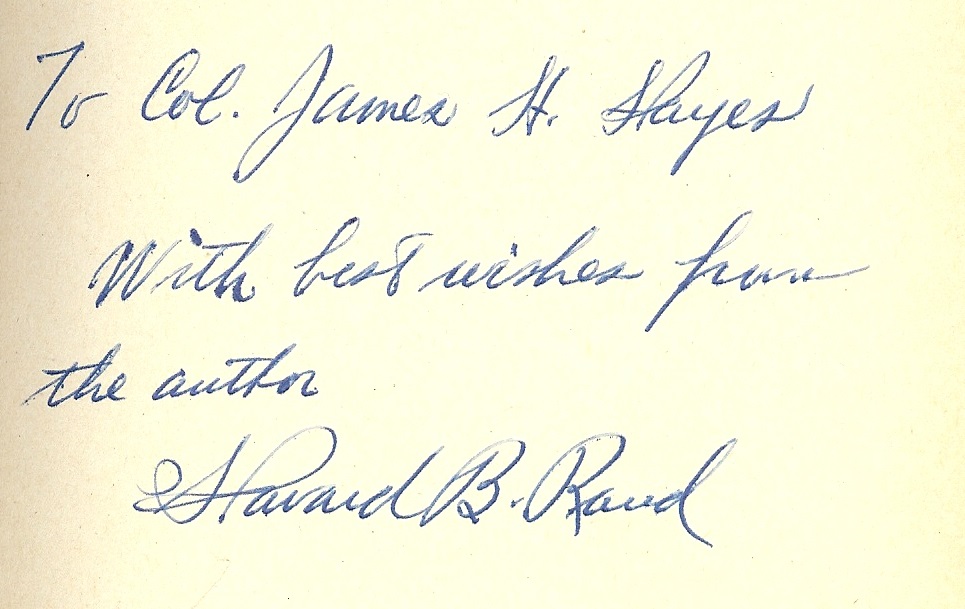 To Col. James H. Hayes
With best wishes from
the author
Howard B. Rand